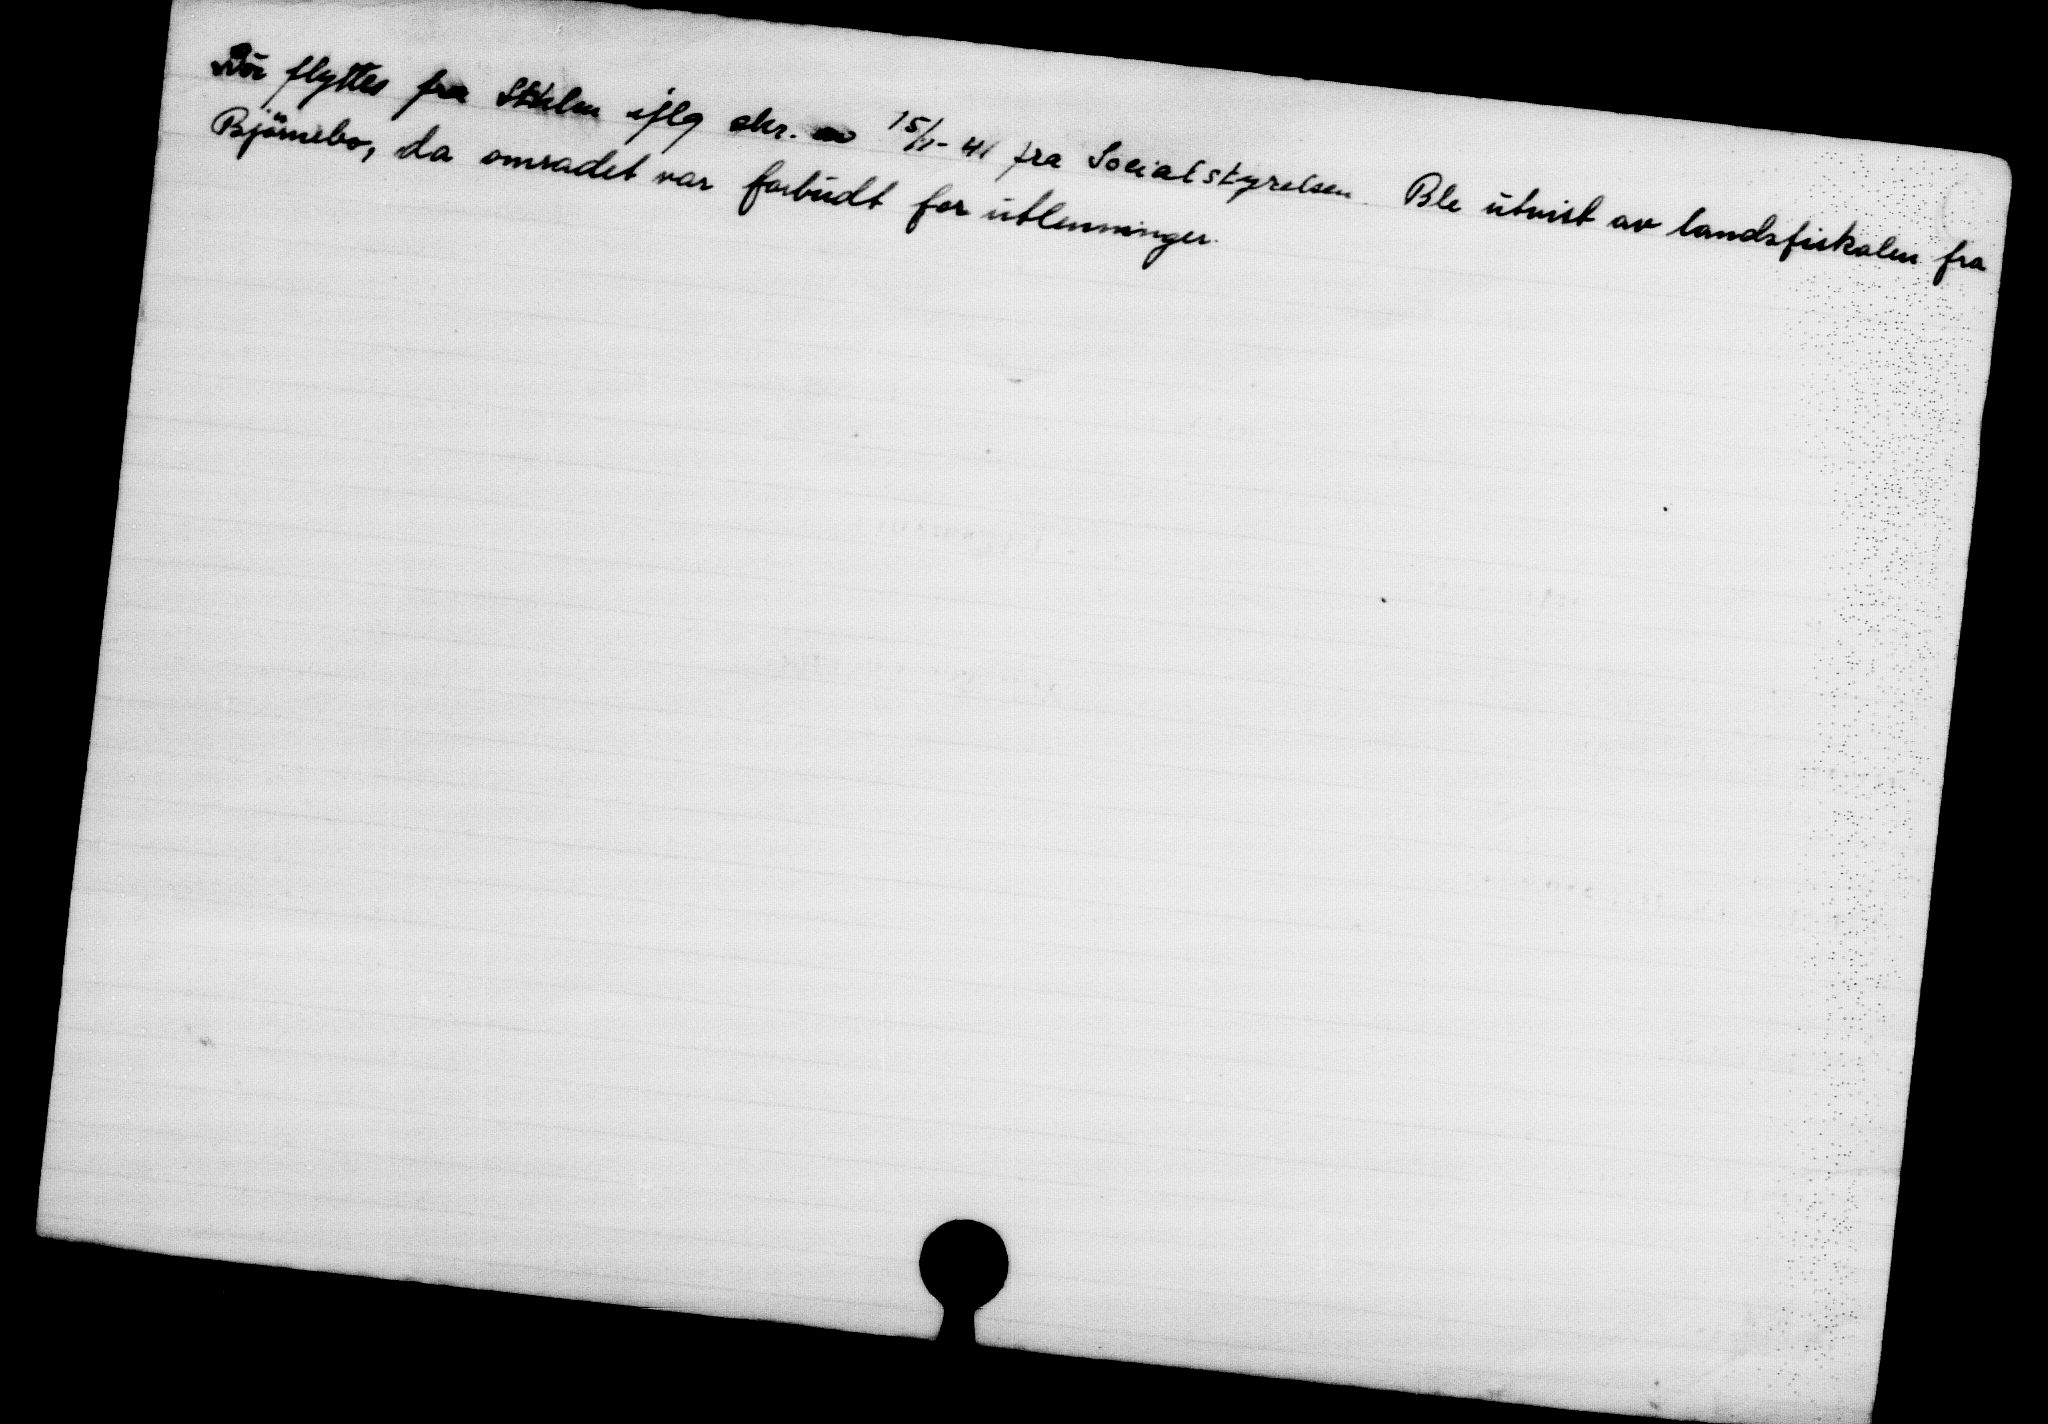 Bör flyttes fra Sthlm iflg skr. av 15/11-41 fra Socialstyrelsen. Ble utvist av landsfiskalen fra
Björnebo, da omradet var forbudt for utlenninger.